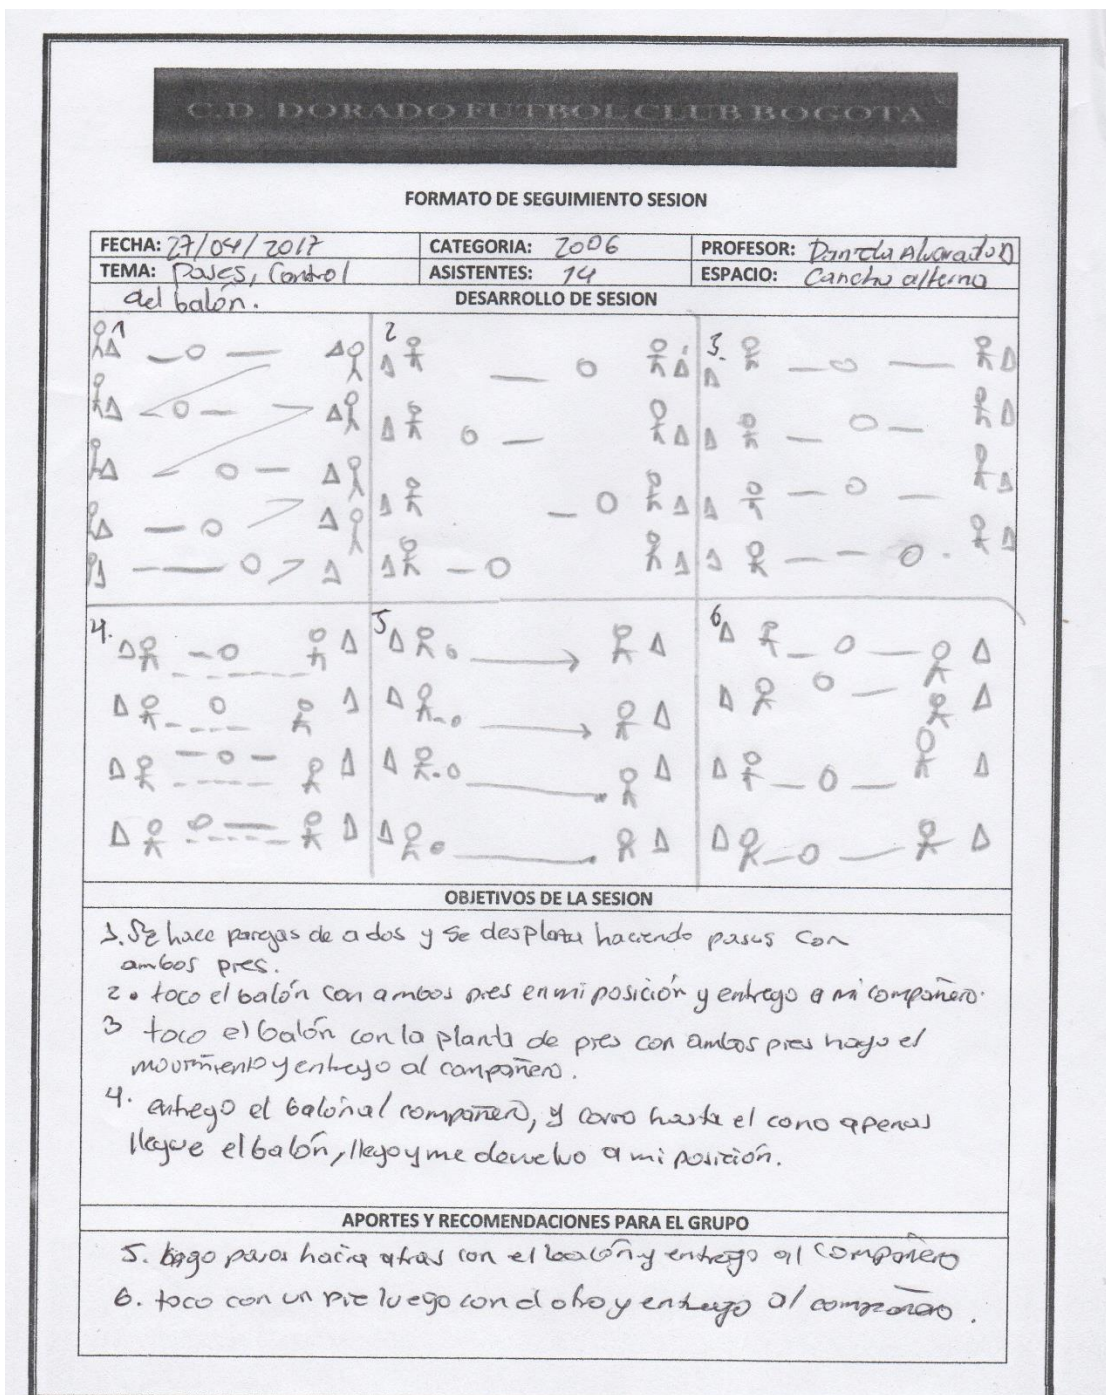 C.D. DORADO FUTBOL CLUB BOGOTA
FORMATO DE SEGUIMIENTO SESION
FECHA: 27/04/2017 CATEGORIA: 2006 PROFESOR: Daniela Alvarado D
TEMA: Pases, Control ASISTENTES: 14 ESPACIO: Cancha alterna
del balón. DESARROLLO DE SESION
1 2 3.
4. 5 6
OBJETIVOS DE LA SESION
1. Se hace parejas de a dos y se desplaza haciendo pases con
ambos pies.
2. toco el balón con ambos pies en mi posición y entrego a mi compañero.
3 toco el balón con la planta de pies con ambos pies hago el
movimiento y entrego al compañero.
4. entrego el balón al compañero, y corro hasta el cono apenas
llegue el balón, llego y me devuelvo a mi posición.
APORTES Y RECOMENDACIONES PARA EL GRUPO
5. hago pasos hacia atras con el balón y entrego al compañero
6. toco con un pie luego con el otro y entrego al compañero.